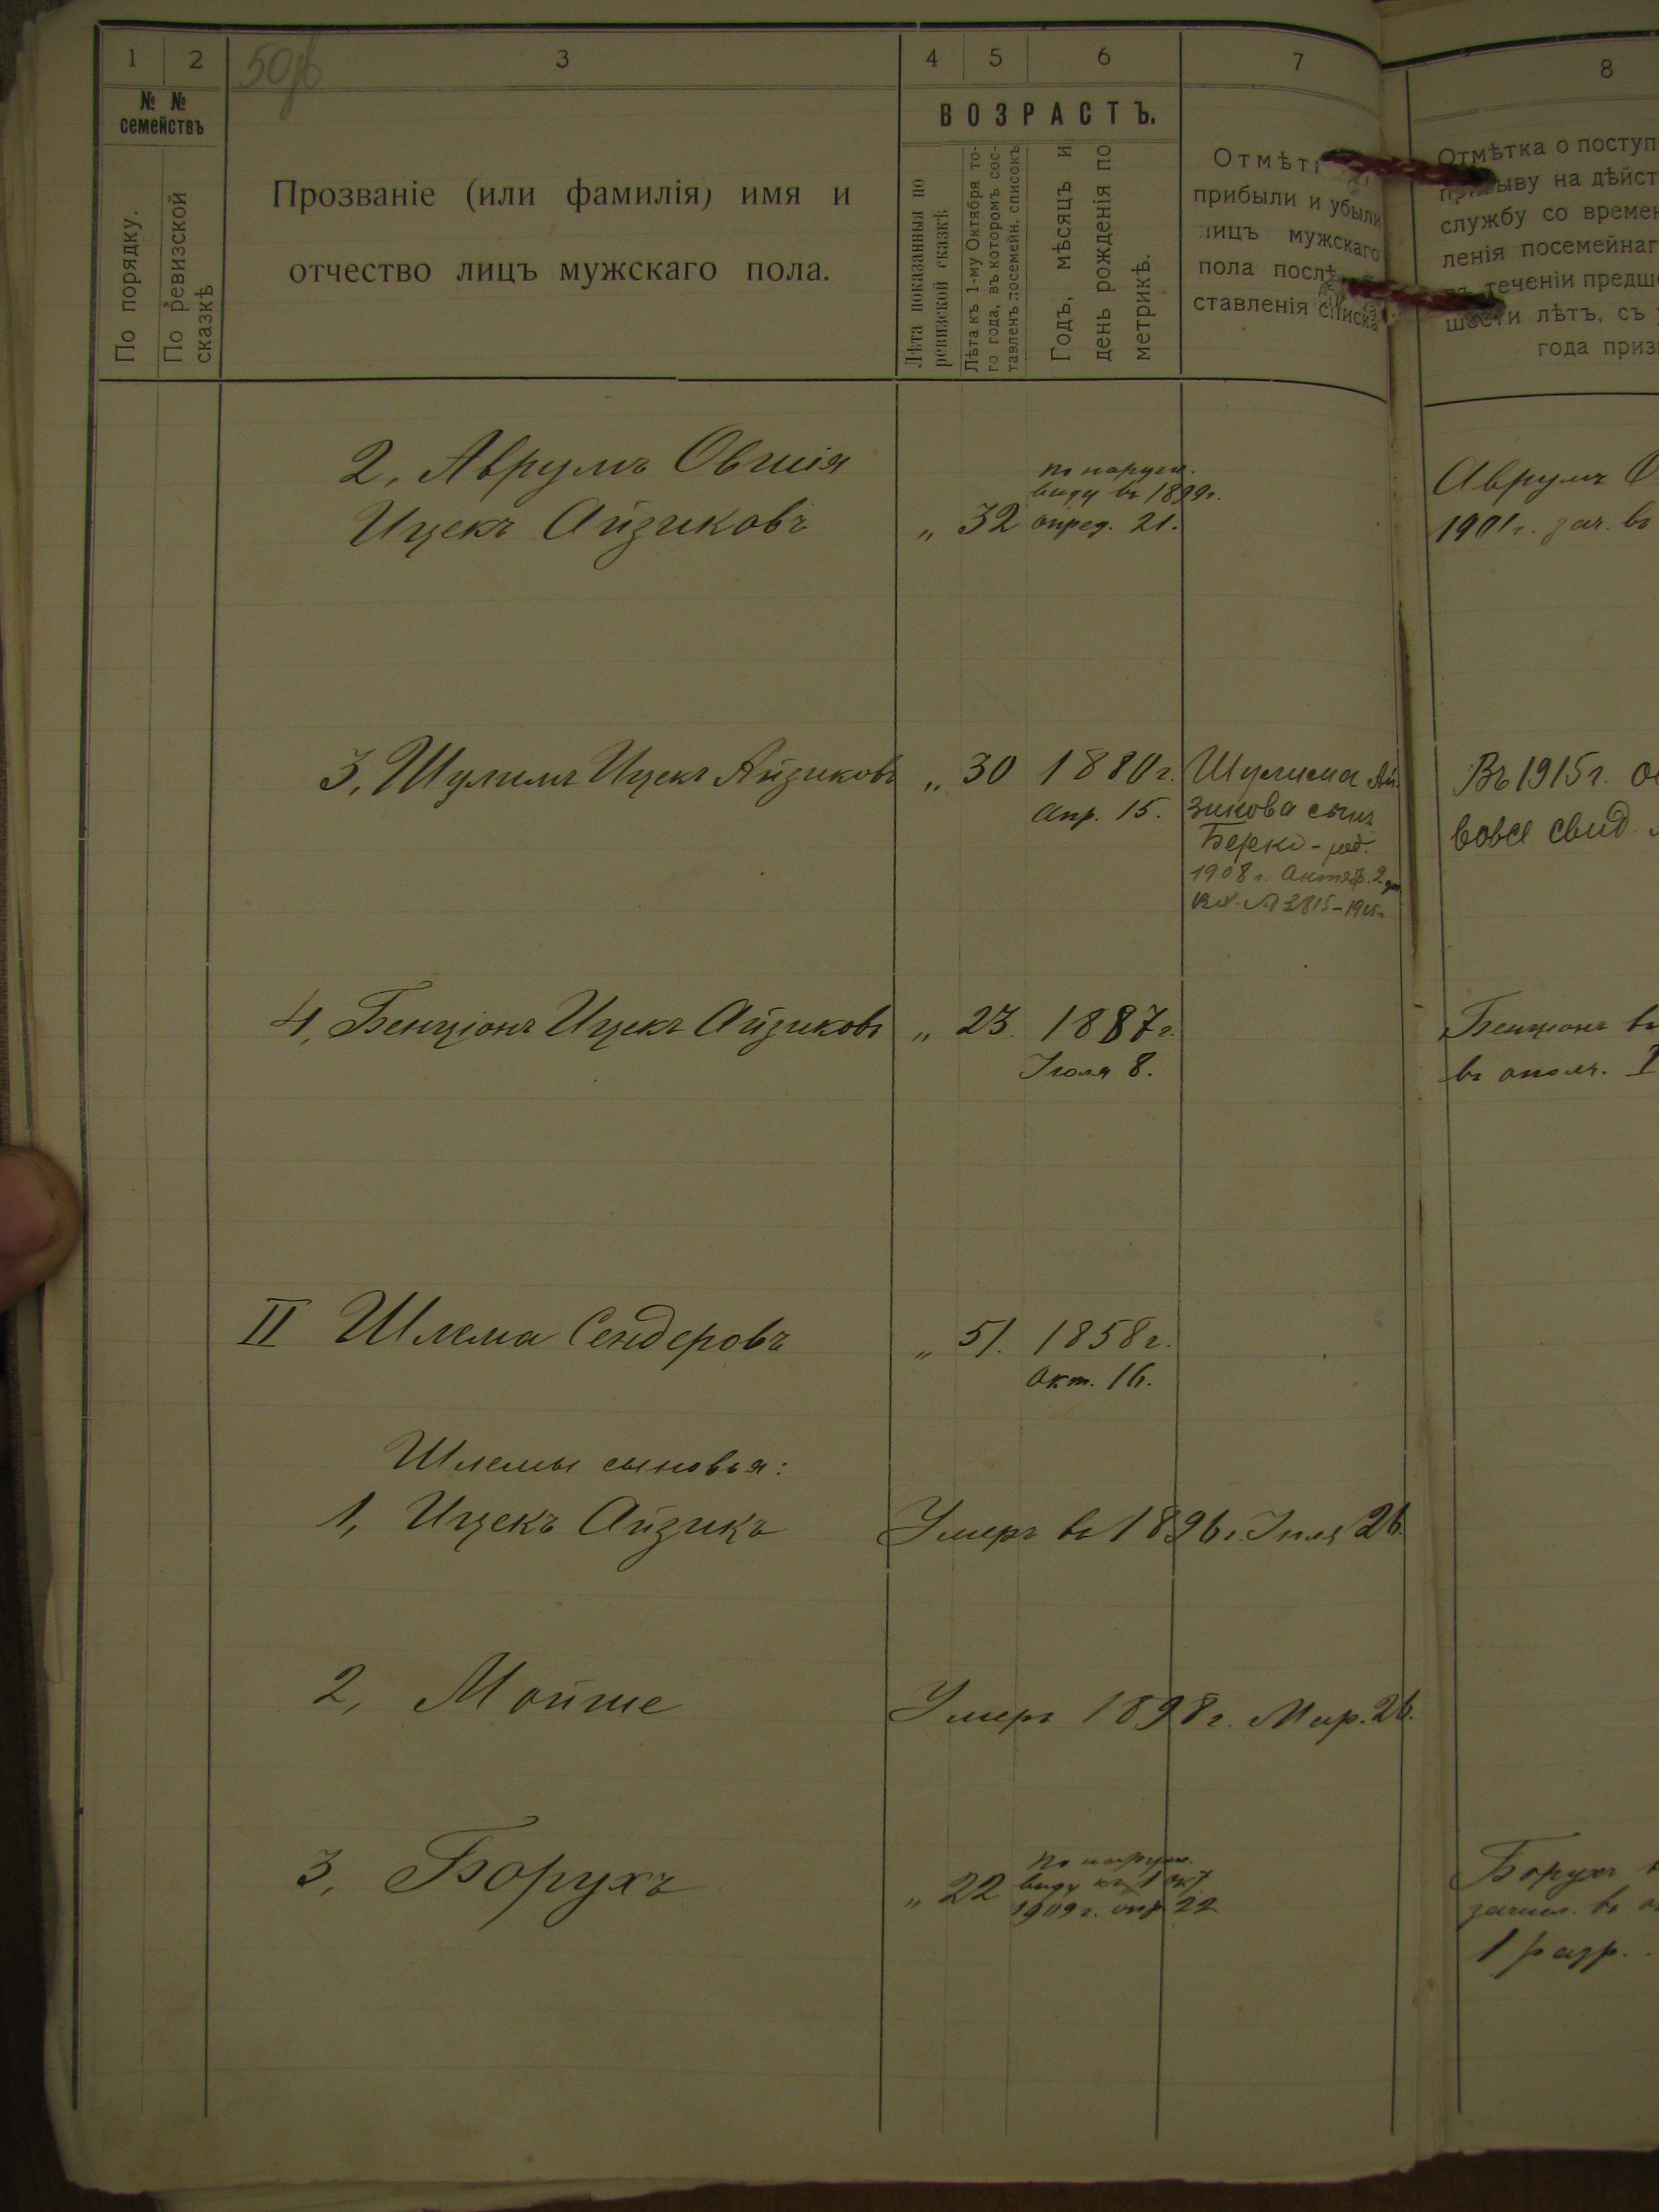 1
2
50об
3
4
5
6
7
8
№ №
семействъ
По порядку.
По ревизской
сказкѣ
Прозваніе (или фамилія) имя и
отчество лицъ мужскаго пола.
ВОЗРАСТЪ.
Лѣта показанныя по
ревизской сказкѣ
Лѣта къ 1-му Октября то-
го года, въ которомъ сос-
тавленъ посемейн. списокъ
Годъ, мѣсяцъ и
день рожденія по
метрикѣ.
Отмѣт
прибыли и убыли
лицъ мужскаго
пола послѣ
ставленія списка
Отмѣтка о поступ
ыву на дѣйст
службу со времен
ленія посемейнаг
въ теченіи предше
шести лѣтъ, съ
года приз
2, Аврумъ Овшія
Ицекъ Айзиковъ
„ 32
по наруж.
виду въ 1899г.
опред. 21.
Аврумъ О
1901г. зач. въ
3, Шулимъ Ицекъ Айзиковъ
„ 30
1880г.
Апр. 15.
Шулима Ай-
зикова сынъ
Берко - род.
1908г. Октяб. 2 дн
Вх. № 2815-1915г
Въ 1915г. ос
вовсе свид.
4, Бенціонъ Ицекъ Айзиковъ
„ 23.
1887г.
Іюля 8.
Бенціонъ въ
въ ополч. I
II Шлема Сендеровъ
„ 51.
1858г.
Окт. 16.
Шлемы сыновья:
1, Ицекъ Айзикъ
Умеръ въ 1896г. Іюля 26.
2, Мойше
Умеръ 1898г. Мар. 26.
3, Борухъ
„ 22
по наруж.
виду къ 1 окт
1909г. опр 22
Борухъ в
зачисл. въ о
1 разр.